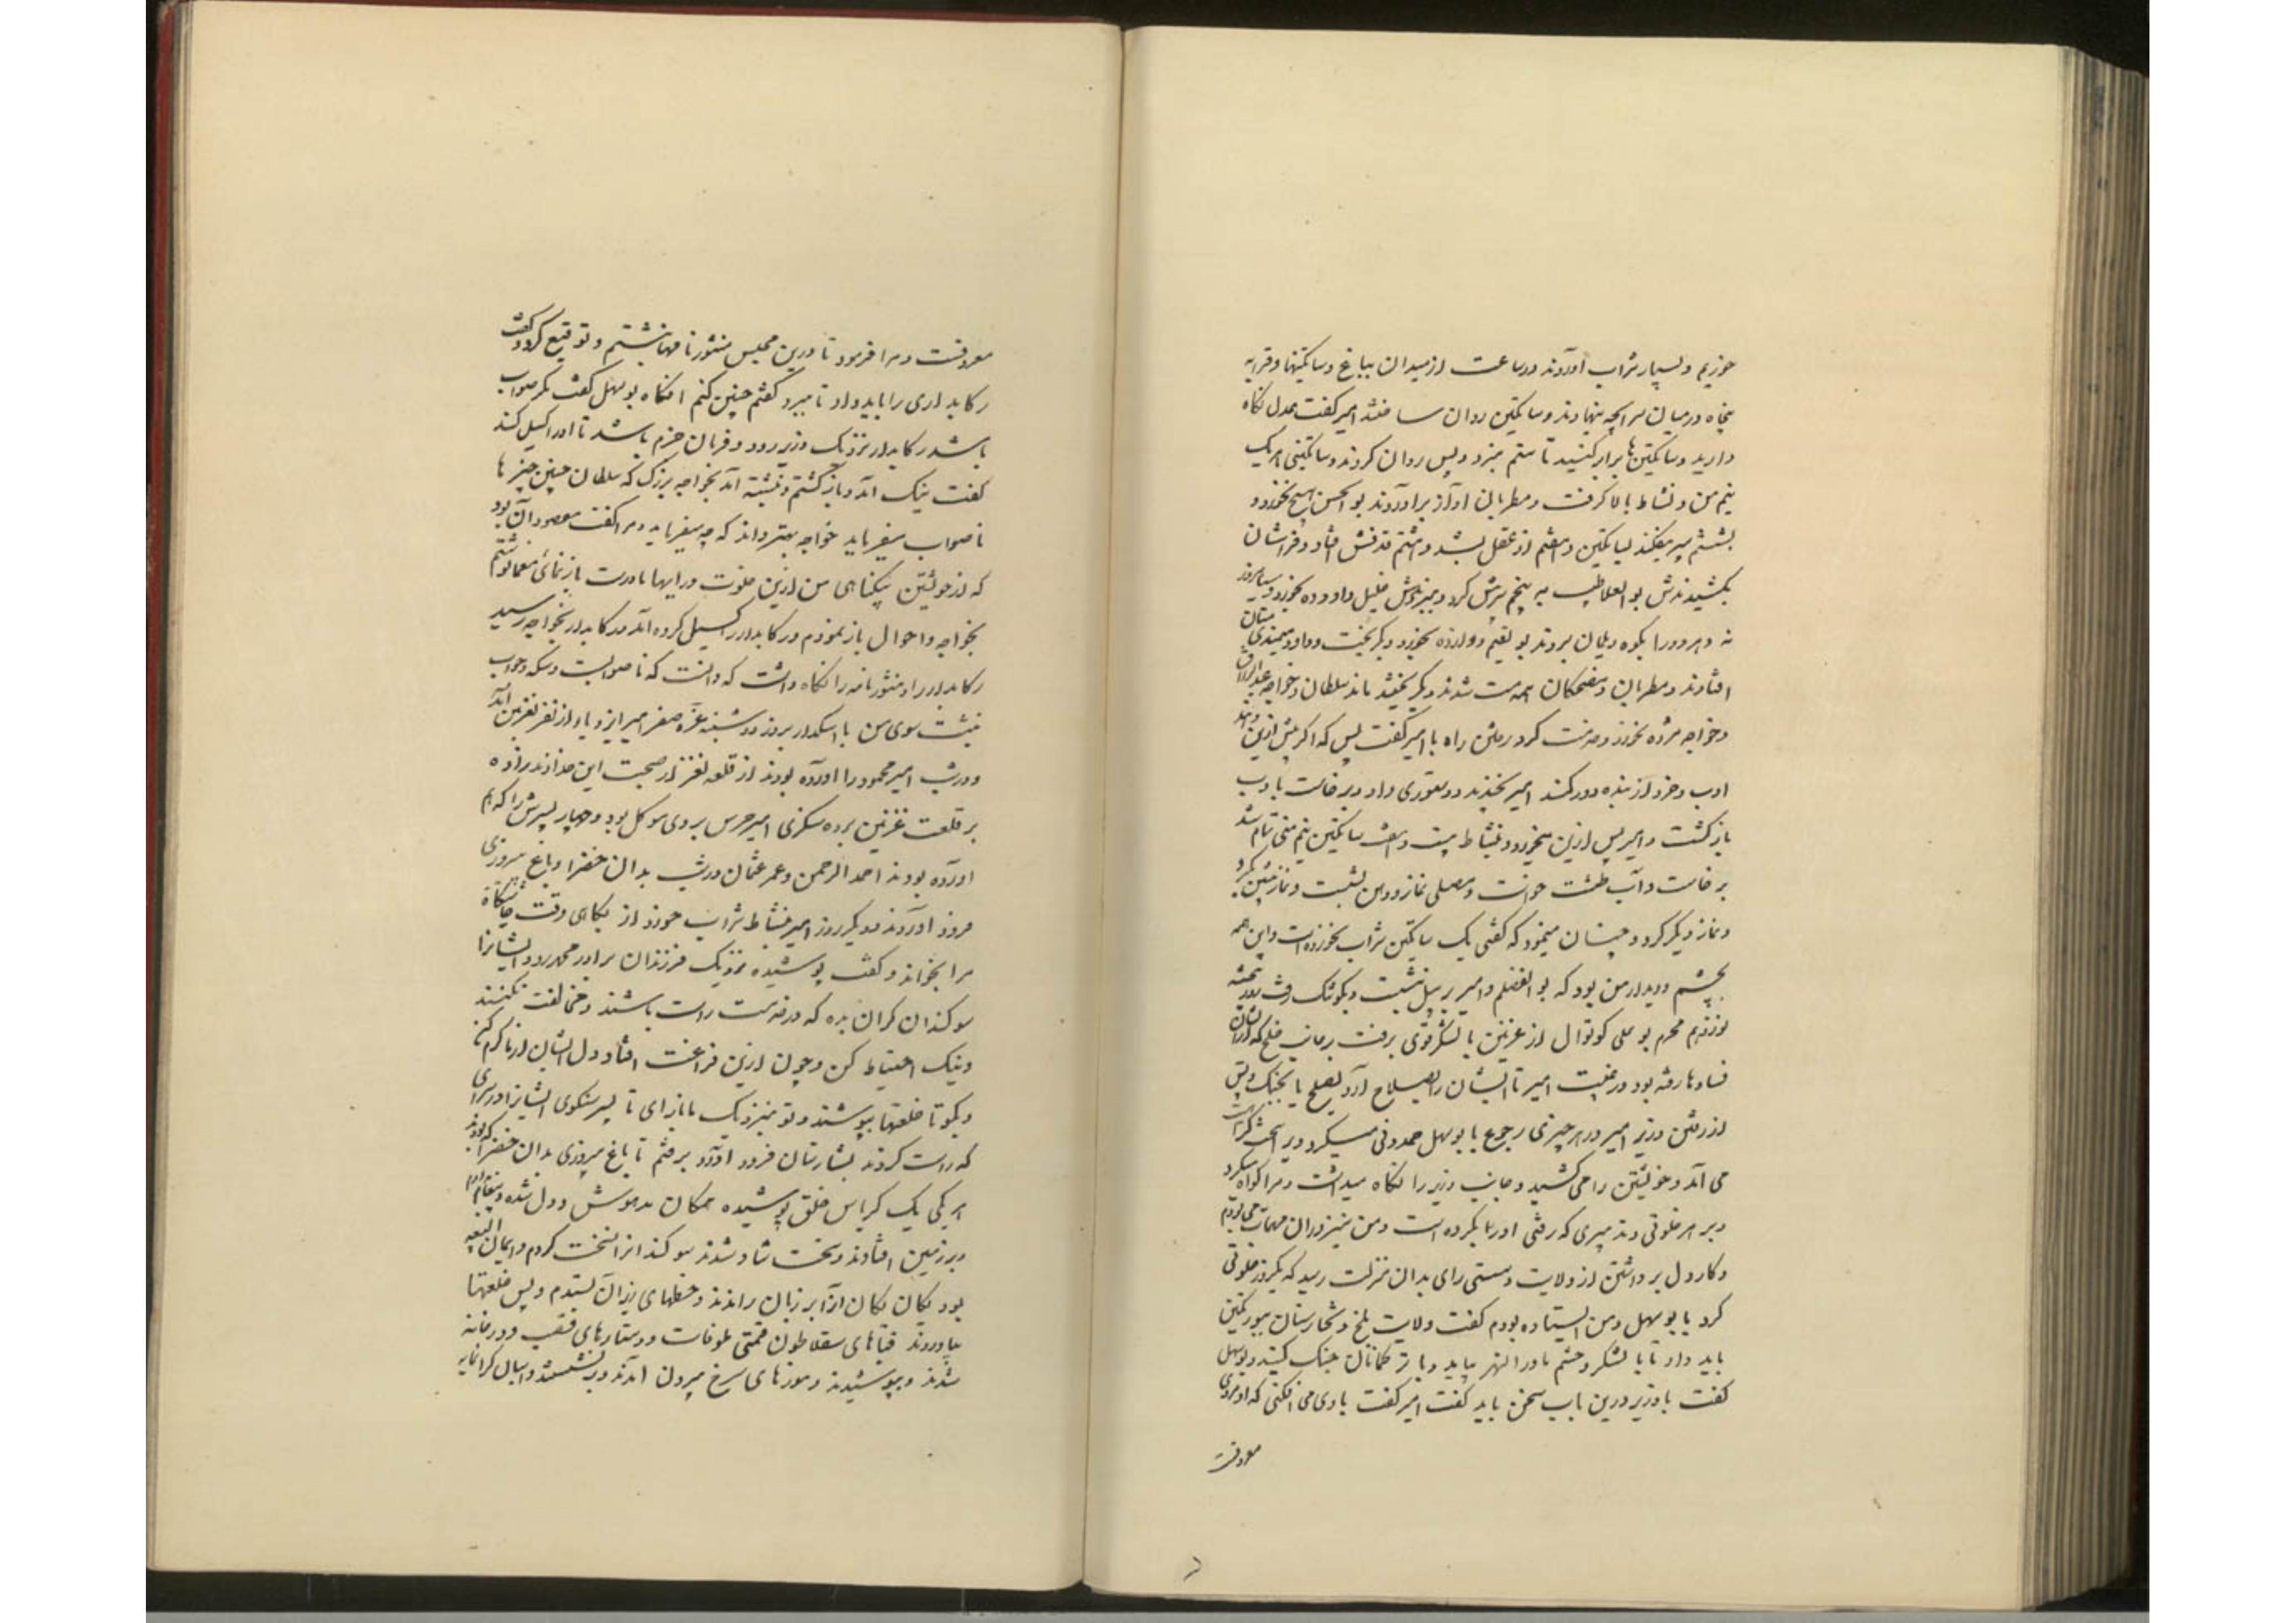 خوریم و بسیار شراب آوردند در ساعت از میدان بباغ و ساتکینها و قرابه
پنجاه در میان سراچه بنهادند و ساتکین روان ساختند امیر گفت عدل نگاه
دارید و ساتکین‌ها برابر کنید تا ستم نرود و پس روان کردند و ساتکینی هر یک
نیم من و نشاط بالا گرفت و مطربان آواز برآوردند بوالحسن پنج بخورد و
بششم سپر بیفکند بساتکین و هفتم از عقل بشد و هشتم قذفش افتاد و فراشان
بکشیدندش بوالعلا طبیب به پنجم سر پیش کرد و ببردندش خلیل داود ده بخورد و سیابیروز
نه و هر دو را بکوی دیلمان بردند بونعیم دوازده بخورد و بگریخت و داود میمندی مستان
افتاد و مطربان و مضحکان همه مست شدند و بگریختند ماند سلطان و خواجه عبدالرزاق
و خواجه هژده بخورد و خدمت کرد رفتن را و با امیر گفت بس که اگر بیش ازین دهند
ادب و خرد از بنده دور کند امیر بخندید و دستوری داد و برخاست با ادب
بازگشت و امیر پس ازین میخورد و بنشاط بیست و هفت ساتکین نیم منی تمام شد
برخاست و آب طشت خواست و مصلی نماز و دهن بشست و نماز پیشین بکرد
و نماز دیگر کرد و چنان مینمود که گفتی یک ساتکین شراب نخورده است و این همه
بچشم و دیدار من بود که بوالفضلم و امیر بر پیل نشست و بکوشک رفت روز پنجشنبه
نوزدهم محرم بوعلی کوتوال از غزنین با لشکر قوی برفت بر جانب خلج که از ایشان
فسادها رفته بود در غیبت امیر تا ایشان را بصلاح آرد بصلح یا بجنگ و پس
از رفتن وزیر امیر در هر چیزی رجوع با بوسهل حمدونی میکرد و بر سخت کراهیت
می آمد و خویشتن را می کشید و جانب وزیر را نگاه میداشت و مرا گواه میکرد
و بر هر خلوتی و تدبیری که رفتی او را بکرده است و من نیز در آن مهمات می بودم
و کار دل برداشتن از ولایت و سستی رای بدان منزلت رسید که یکروز خلوتی
کرد با بوسهل و من ایستاده بودم گفت ولایت بلخ و تخارستان ببورتکین
باید داد تا با لشکر و حشم ماوراالنهر بیاید و با ترکمانان جنگ کند بوسهل
گفت با وزیر درین باب سخن باید گفت امیر گفت با وی می افکنی که او مردی
معروفست
معروفست و مرا فرمود تا درین مجلس منشور نامها نبشتم و توقیع کرد و گفت
رکابداری را باید داد تا ببرد گفتم چنین کنم آنگاه بوسهل گفت مگر صواب
باشد رکابدار نزدیک وزیر رود و فرمان جزم باشد تا او را گسیل کند
گفت نیک آمد و بازگشتم و نبشته آمد بخواجه بزرگ که سلطان چنین چیزها
ناصواب میفرماید خواجه بهتر داند که چه میفرماید و مرا گفت مقصود آن بود
که از خویشتن بیگناهی من ازین خلوت و رایها نادرست باز نمائی معما نوشتم
بخواجه و احوال باز نمودم و رکابدار را گسیل کرده آمد و رکابدار بخواجه رسید
رکابدار را و منشور نامه را نگاه داشت که دانست که ناصوابست و سکه و جواب
نبشت سوی من با اسکدار بروز دوشنبه غره صفر امیر ایزدیار از نغر بغزنین آمد
و درشب امیر محمود را آورده بودند از قلعه نغز در صحبت این خداوند زاده
بر قلعت غزنین برده سکزی امیر حرس بر وی موکل بود و چهار پسرش را که هم
آورده بودند احمد الرحمن و عمر عثمان درشب بدان خضرا و باغ پیروزی
فرود آوردند و دیگر روز امیر بنشاط شراب خورد از پگاهی وقت چاشتگاه
مرا بخواند و گفت پوشیده نزدیک فرزندان برادر محمد رو و ایشانرا
سوگندان گران بده که در خدمت راست باشند و مخالفت نکنند
و نیک احتیاط کن و چون ازین فراغت افتاد دل ایشان از ما گرم کن
و بگو تا خلعتها بپوشند و تو بنزدیک ما بازآی تا پسر سنکوی ایشانرا در سرای
که راست کردند بشارستان فرود آورد برفتم تا باغ پیروزی بدان خضرا که بودند
هر یکی یک کرباس خلق پوشیده همگان مدهوش و دل شده و پیغام دادم
و بر زمین افتادند و سخت شاد شدند سوگندانرا نسخت کردم و ایمان البیعه
بود یگان یگان آنرا بر زبان راندند و خطهای ایشان بستدم و پس خلعتها
بیاوردند قباهای سقلاطون قیمتی ملوفات و دستارهای قصب و در خانه
شدند و بپوشیدند و موزهای سرخ بیرون آمدند و برنشستند و اسبان گرانمایه